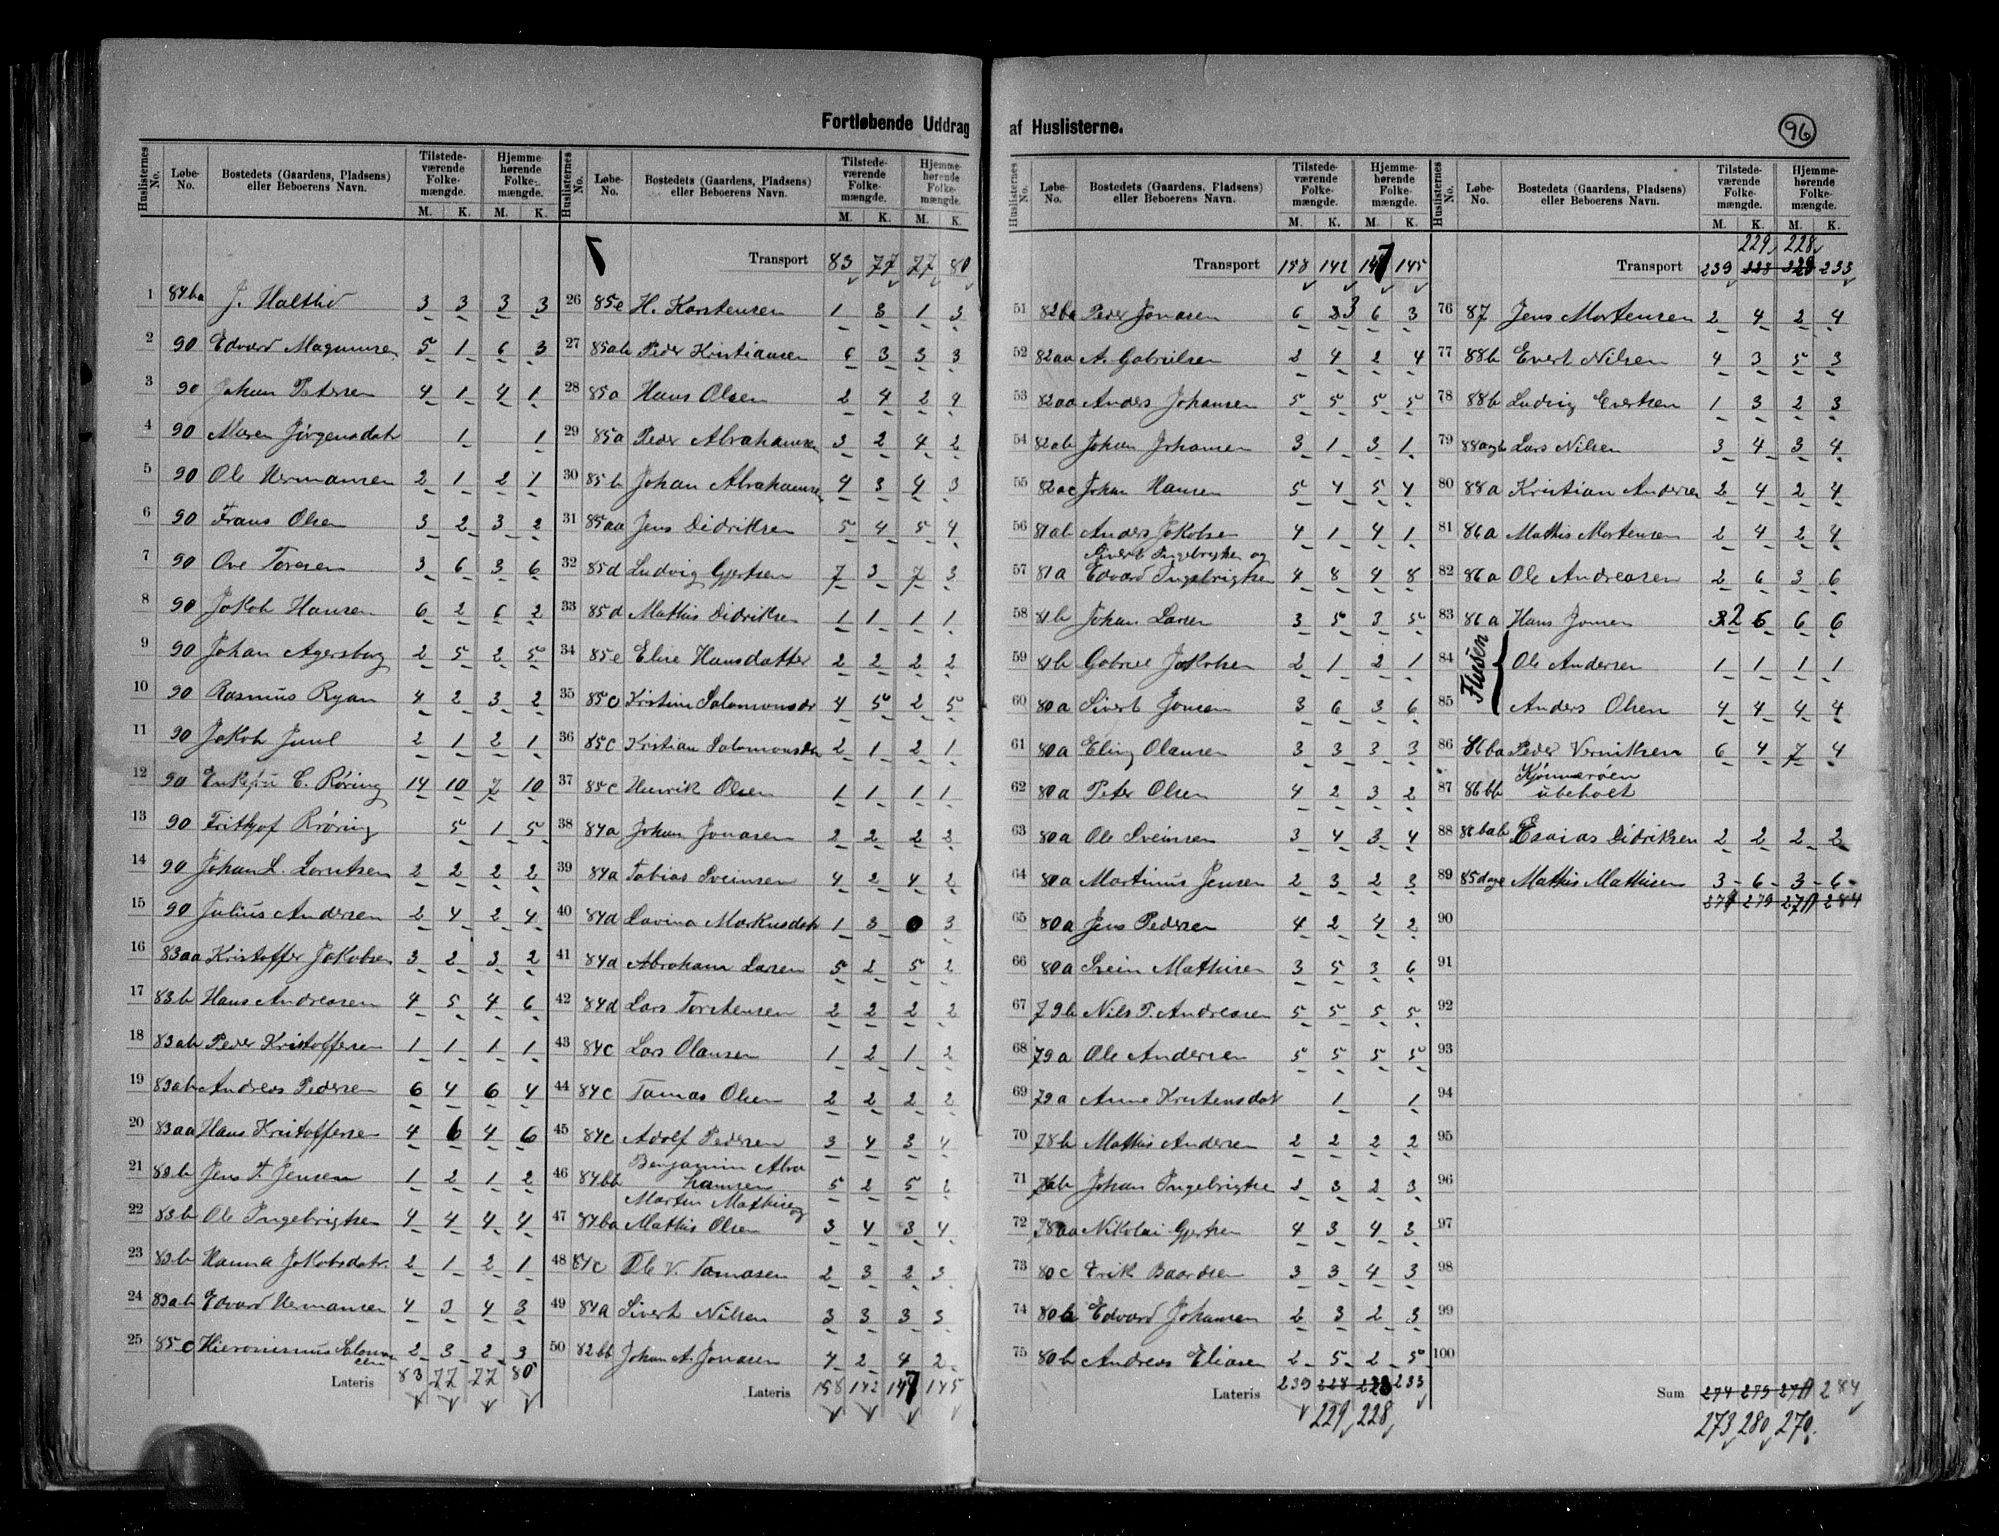 Fortløbende Uddrag af Huslisterne.
96
Huslisternes No. Løbe-No. Bostedets (Gaardens, Pladsens) eller Beboerens Navn. Tilstedeværende Folkemængde. M. K. Hjemmehørende Folkemængde. M. K.
1 84ba J. Haltlid 3 3 3 3
2 90 Edvard Magnussen 5 1 6 3
3 90 Johan Petersen 4 1 4 1
4 90 Maren Jørgensdatr 1 1
5 90 Ole Hermansen 2 1 2 1
6 90 Frans Olsen 3 2 3 2
7 90 Ove Toresen 3 6 3 6
8 90 Jakob Hansen 6 2 6 2
9 90 Johan Agersborg 2 5 2 5
10 90 Rasmus Ryan 4 2 3 2
11 90 Jakob Juul 2 1 2 1
12 90 Enkefru C. Røring 14 10 7 10
13 90 Frithjof Røring 5 1 5
14 90 Johan L. Lorntsen 2 2 2 2
15 90 Julius Andersen 2 4 2 4
16 83aa Kristoffer Jakobsen 3 2 3 2
17 83b Hans Andreasen 4 5 4 6
18 83ab Peder Kristoffersen 1 1 1 1
19 83ab Andreas Pedersen 6 4 6 4
20 83aa Hans Kristoffersen 4 6 4 6
21 83b Jens F. Jensen 1 2 1 2
22 83b Ole Ingebrigtsen 4 4 4 4
23 83b Hanna Jakobsdatr. 2 1 2 1
24 83ab Edvard Hermansen 4 3 4 3
25 85c Hieronimus Salomonsen 2 3 2 3
Lateris 83 77 77 80
Huslisternes No. Løbe-No. Bostedets (Gaardens, Pladsens) eller Beboerens Navn. Tilstedeværende Folkemængde. M. K. Hjemmehørende Folkemængde. M. K.
Transport 83 77 77 80
26 85e H. Karstensen 1 3 1 3
27 85ab Peder Kristiansen 6 3 3 3
28 85a Hans Olsen 2 4 2 4
29 85a Peder Abrahamsen 3 2 4 2
30 85b Johan Abrahamsen 4 3 4 3
31 85aa Jens Didriksen 5 4 5 4
32 85d Ludvig Gjertsen 7 3 7 3
33 85d Mathis Didriksen 1 1 1 1
34 85e Elise Hansdatter 2 2 2 2
35 85c Kristine Salomonsdr 4 5 2 5
36 85c Kristian Salomonsen 2 1 2 1
37 85c Henrik Olsen 1 1 1 1
38 84a Johan Jonasen 2 2 2 2
39 84a Tobias Sveinsen 4 2 4 2
40 84d Lavina Markusdatr 1 3 0 3
41 84d Abraham Larsen 5 2 5 2
42 84d Lars Torstensen 2 2 2 2
43 84c Lars Olausen 1 2 1 2
44 84c Tomas Olsen 2 2 2 2
45 84c Adolf Pedersen 3 4 3 4
46 84bb Benjamin Abrahamsen 5 2 5 2
47 84ba Martin Mathisen og Mathis Olsen 3 4 3 4
48 84c Ole V. Tomasen 2 3 2 3
49 84a Sivert Nilsen 3 3 3 3
50 82bb Johan A. Jonasen 4 2 4 2
Lateris 158 142 147 145
Huslisternes No. Løbe-No. Bostedets (Gaardens, Pladsens) eller Beboerens Navn. Tilstedeværende Folkemængde. M. K. Hjemmehørende Folkemængde. M. K.
Transport 158 142 147 145
51 82ba Peder Jonasen 6 3 6 3
52 82aa A. Gabrielsen 2 4 2 4
53 82aa Anders Johansen 5 5 5 5
54 82ab Johan Johansen 3 1 3 1
55 82ac Johan Hansen 5 4 5 4
56 81ab Anders Jakobsen 4 1 4 1
57 81a Sivert Ingebrigtsen og Edvard Ingebrigtsen 4 8 4 8
58 81b Johan Larsen 3 5 3 5
59 81b Gabriel Jakobsen 2 1 2 1
60 80a Sivert Jonsen 3 6 3 6
61 80a Eling Olausen 3 3 3 3
62 80a Peter Olsen 4 2 3 2
63 80a Ole Sveinsen 3 4 3 4
64 80a Martinus Jensen 2 3 2 3
65 80a Jens Pedersen 4 2 4 2
66 80a Svein Mathisen 3 5 3 6
67 79b Nils P. Andreasen 5 5 5 5
68 79a Ole Andersen 5 5 5 5
69 79a Anne Kristensdat 1 1
70 78b Mathis Andersen 2 2 2 2
71 78ab Johan Ingebrigtsen 2 3 2 3
72 78aa Nikolai Gjertsen 4 3 4 3
73 80c Erik Baardsen 3 3 4 3
74 80b Edvard Johansen 2 3 2 3
75 80b Andreas Eliasen 2 5 2 5
Lateris 239 228 228 233
229 228
Huslisternes No. Løbe-No. Bostedets (Gaardens, Pladsens) eller Beboerens Navn. Tilstedeværende Folkemængde. M. K. Hjemmehørende Folkemængde. M. K.
229 228
Transport 239 228 228 233
76 87 Jens Mortensen 2 4 2 4
77 88b Evert Nilsen 4 3 5 3
78 88b Ludvig Evertsen 1 3 2 3
79 88a og b Lars Nilsen 3 4 3 4
80 88a Kristian Andersen 2 4 2 4
81 86a Mathis Mortensen 2 4 2 4
82 86a Ole Andreasen 2 6 3 6
83 86a Hans Jonsen 32 6 6 6
84 Ole Andersen 1 1 1 1
85 Anders Olsen 4 4 4 4
86 86ba Peder Verniksen 6 4 7 4
87 86bb Kjønnerøen ubeboet
88 86bab Esaias Didriksen 2 2 2 2
89 85d og e Mathis Mathisen 3 6 3 6
274 279 270 284
90
91
92
93
94
95
96
97
98
99
100
Sum 274 279 270 284
273 280 270